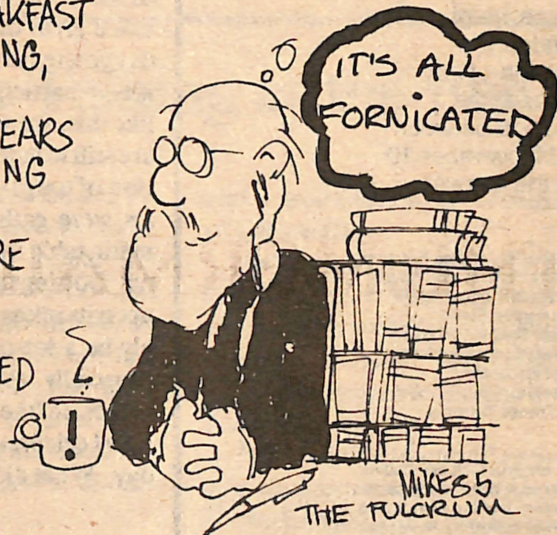 AKFAST
NG,
EARS
NG
RE
ED
IT'S ALL
FORNICATED
!
MIKE85
THE FULCRUM